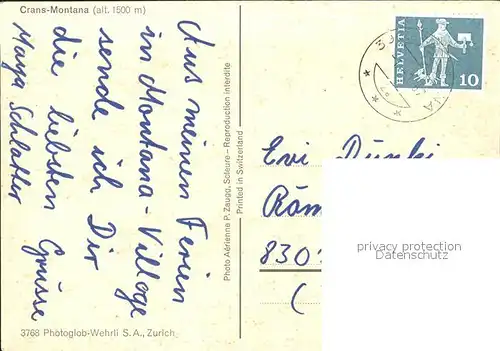 Crans-Montana (alt. 1500 m)
Aus meinen Ferien
in Montana-Village
sende ich Dir
die liebsten Grüsse
Maya Schlatter
3768 Photoglob-Wehrli S.A., Zurich
Photo Aérienne P. Zaugg, Soleure – Reproduction interdite
Printed in Switzerland
HELVETIA
10
Evi
830
(
privacy protection
Datenschutz